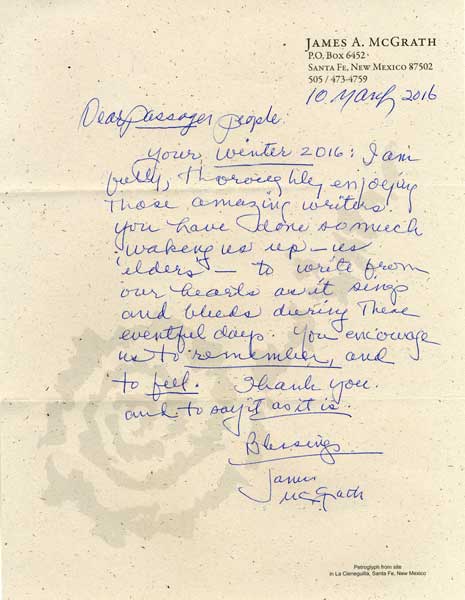 JAMES A. MCGRATH
P.O. BOX 6452
SANTA FE, NEW MEXICO 87502
505 / 473-4759
10 March 2016
Dear Passager people.
Your Winter 2016: I am
fully, thoroughly enjoying
those amazing writers.
You have done so much
waking us up – us
'elders' – to write from
our hearts as it sings
and bleeds during these
eventful days. You encourage
us to remember, and
to feel. Thank you.
and to say it as it is.
Blessings
James
McGrath
Petroglyph from site
in La Cieneguilla, Santa Fe, New Mexico